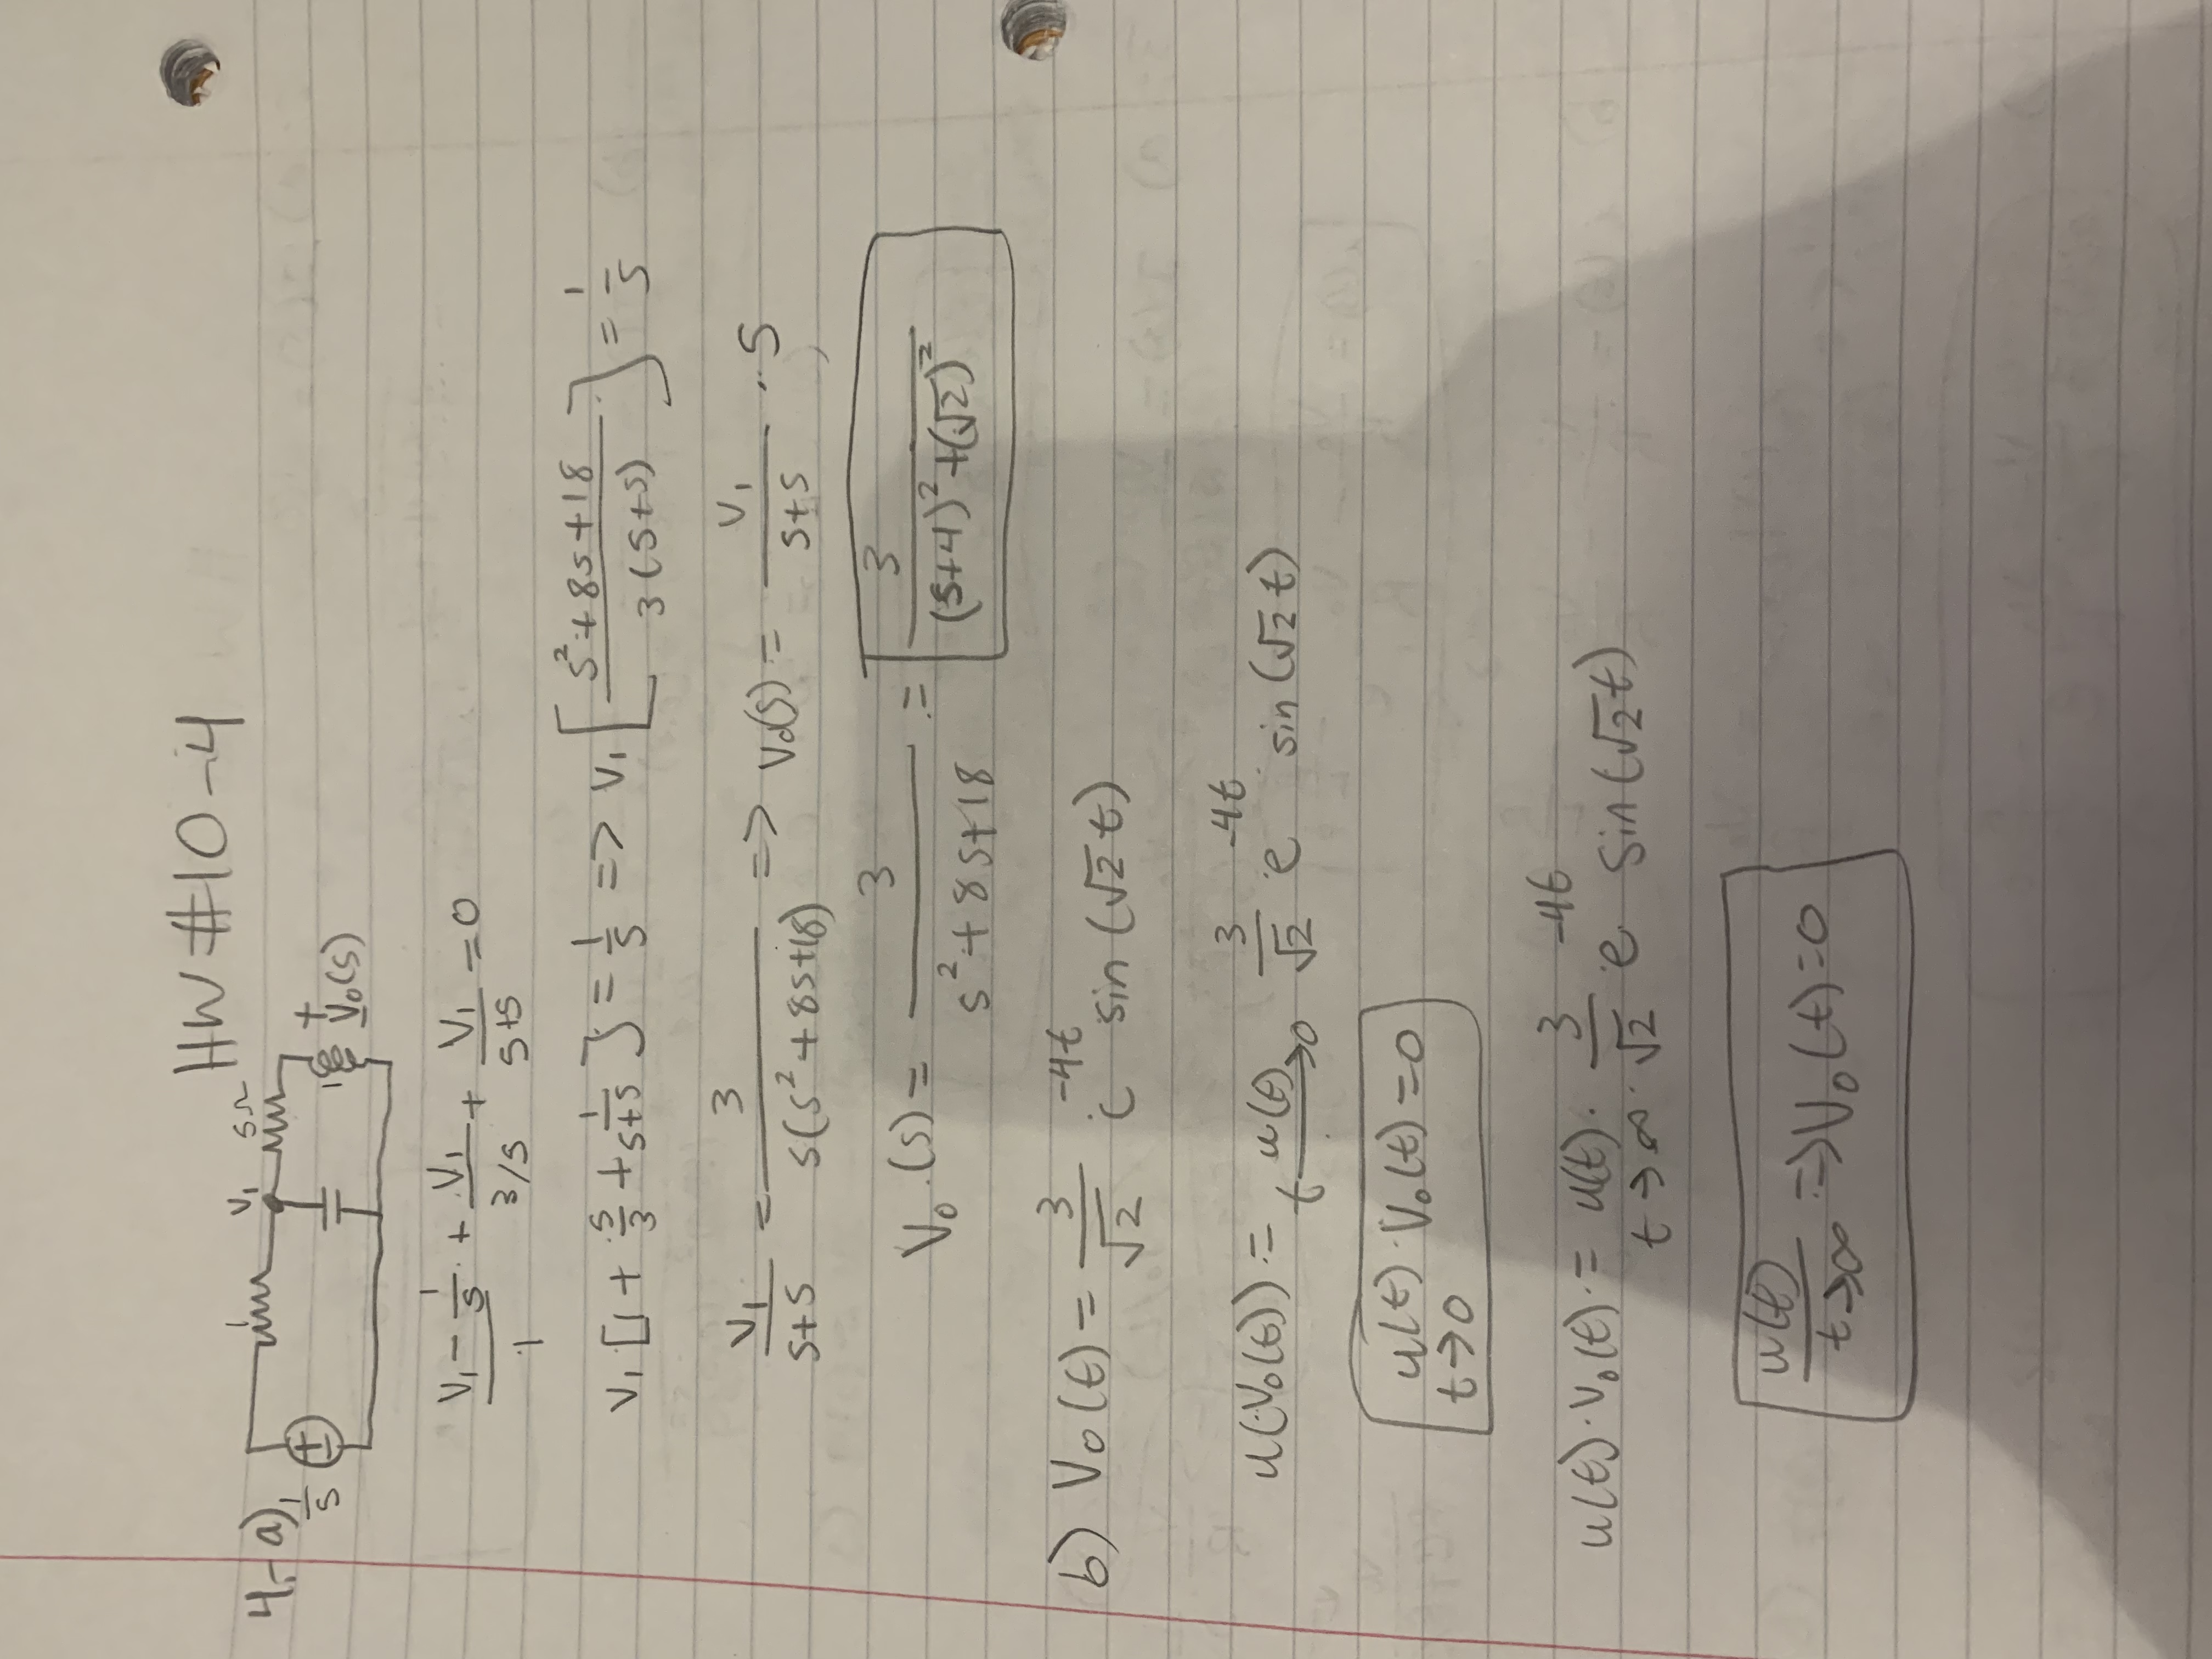 HW #10-4
4.- a) 1/s 1 V₁ 5Ω 1 + V₀(s) -
(V₁ - 1/s)/1 + V₁/(3/s) + V₁/(s+5) = 0
V₁ [1 + s/3 + 1/(s+5)] = 1/s => V₁ [(s²+8s+18)/(3(s+5))] = 1/s
V₁/(s+5) = 3/(s(s²+8s+18)) => V₀(s) = V₁/(s+5) · s
V₀(s) = 3/(s²+8s+18) = 3/((s+4)²+(√2)²)
b) V₀(t) = 3/√2 e^(-4t) sin(√2 t)
u(V₀(t)) = u(t) t→0 3/√2 e^(-4t) sin(√2 t)
u(t) · V₀(t) = 0
t→0
u(t) · V₀(t) · = u(t) · 3/√2 e^(-4t) sin(√2 t)
t→∞
u(t)/t→∞ => V₀(t) = 0